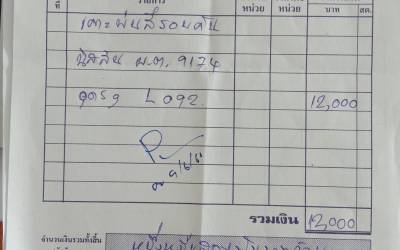 ที่ รายการ หน่วย หน่วย บาท สต.
เคาะพ่นสีรอบคัน
นิสสัน ผ.ต. 9174
อุดร L092. 12,000
รวมเงิน 12,000
จำนวนเงินรวมทั้งสิ้น